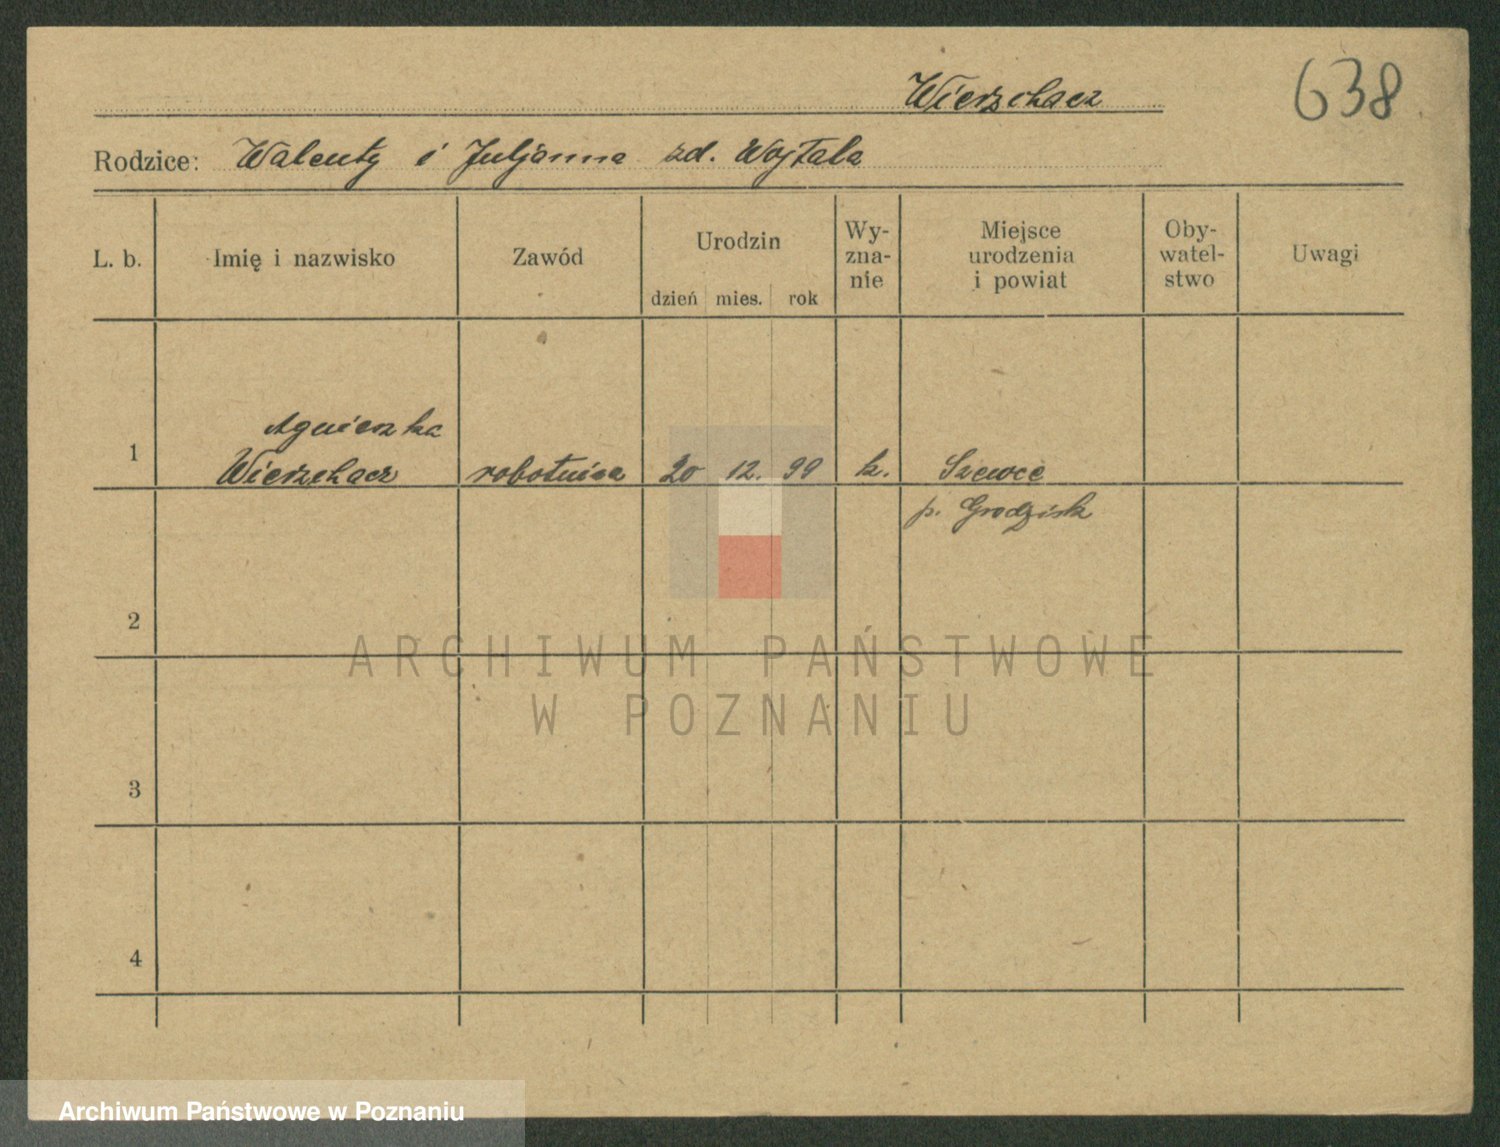 Wierzchacz
638
Rodzice: Walenty i Juljanna zd. Wojtala
L. b. Imię i nazwisko Zawód Urodzin dzień mies. rok Wy-zna-nie Miejsce urodzenia i powiat Oby-watel-stwo Uwagi
Agnieszka
1 Wierzchacz robotnica 20 12. 99 k. Szewce
p. Grodzisk
2
ARCHIWUM PAŃSTWOWE
W POZNANIU
3
4
Archiwum Państwowe w Poznaniu